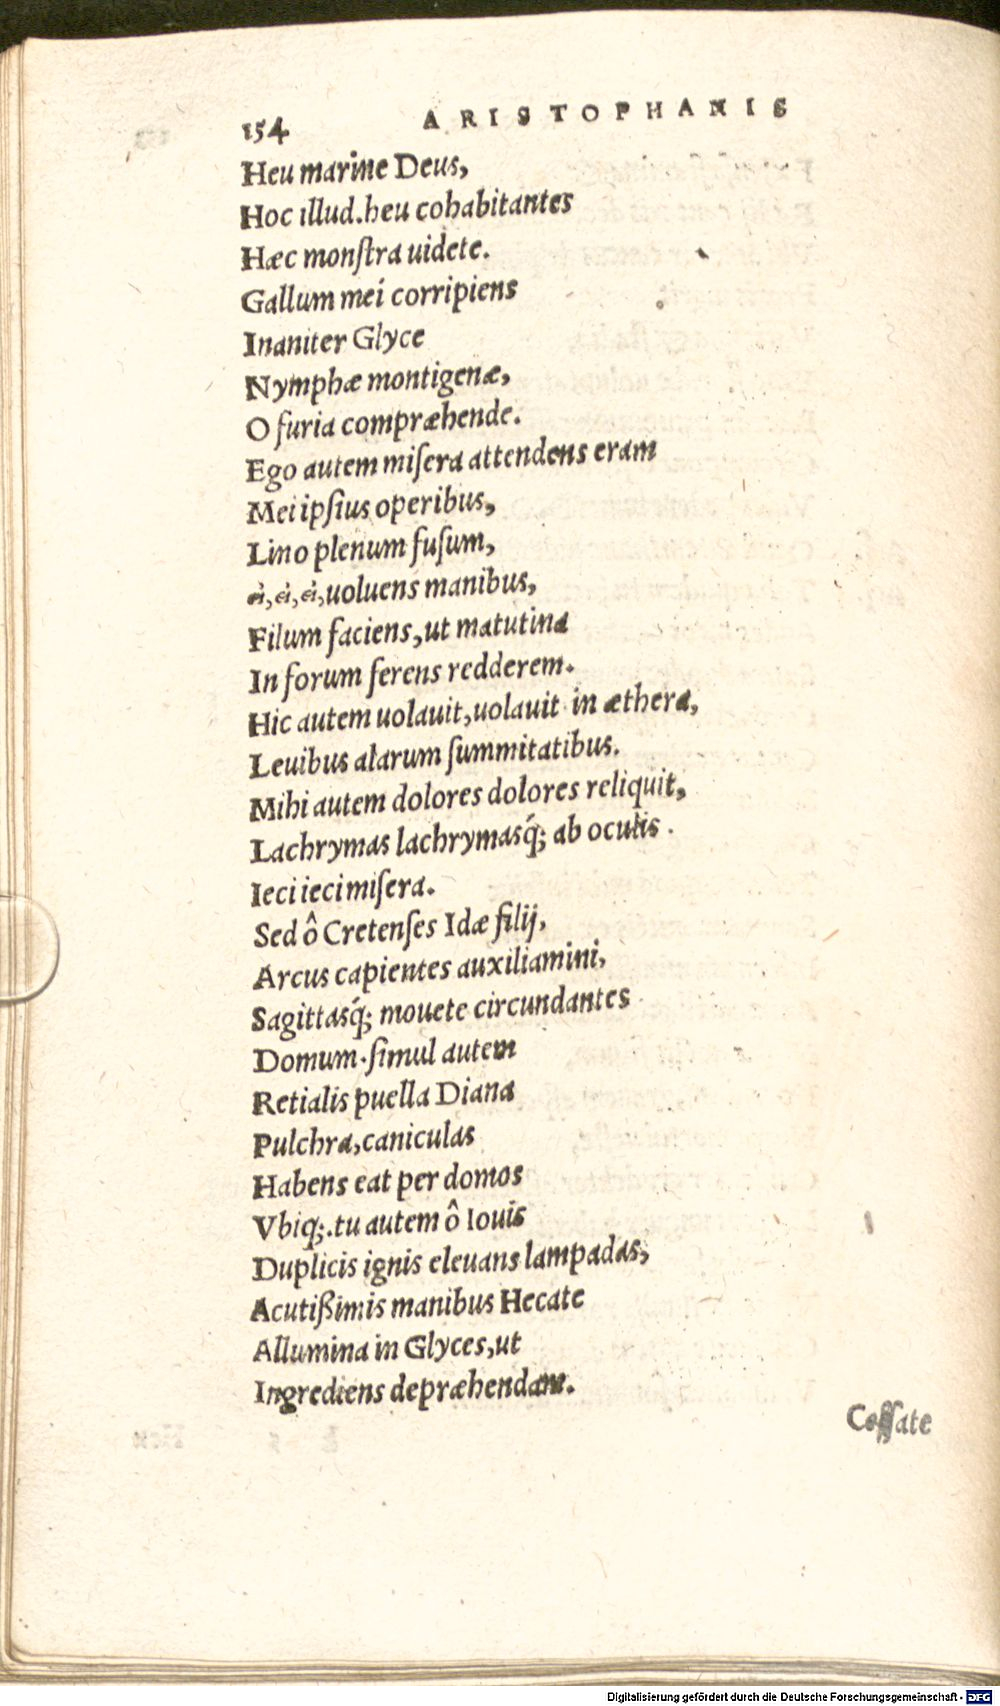 154 ARISTOPHANIS
Heu marine Deus,
Hoc illud. heu cohabitantes
Hæc monſtra uidete.
Gallum mei corripiens
Inaniter Glyce
Nymphæ montigenæ,
O furia compræhende.
Ego autem miſera attendens eram
Mei ipſius operibus,
Lino plenum fuſum,
εἰ, εἰ, εἰ, uoluens manibus,
Filum faciens, ut matutina
In forum ferens redderem.
Hic autem uolauit, uolauit in æthera,
Leuibus alarum ſummitatibus.
Mihi autem dolores dolores reliquit,
Lachrymas lachrymasq́; ab oculis.
Ieci ieci miſera.
Sed ô Cretenſes Idæ filij,
Arcus capientes auxiliamini,
Sagittasq́; mouete circundantes
Domum. ſimul autem
Retialis puella Diana
Pulchra, caniculas
Habens eat per domos
Vbiq;. tu autem ô Iouis
Duplicis ignis eleuans lampadas,
Acutißimis manibus Hecate
Allumina in Glyces, ut
Ingrediens depræhendam.
Ceſſate
Digitalisierung gefördert durch die Deutsche Forschungsgemeinschaft - DFG